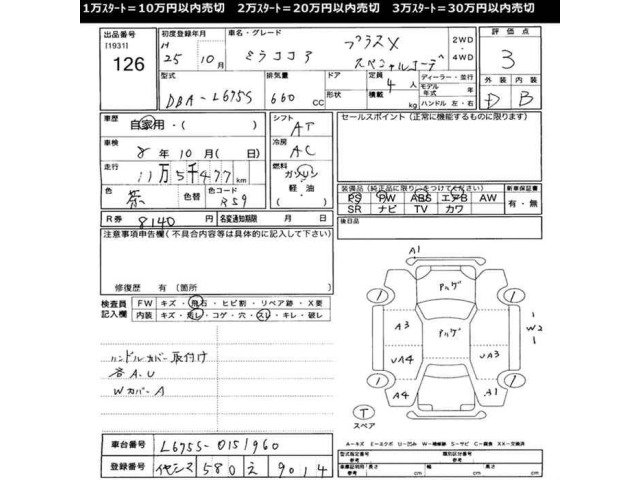 1万スタート＝10万円以内売切　2万スタート＝20万円以内売切　3万スタート＝30万円以内売切
出品番号 初度登録年月 車名・グレード 評価点
[1931] H 25年 10月 ミラココア プラスX スペシャルコーデ 2WD・4WD 3
126
型式 排気量 ドア 定員 ディーラー・並行 外装 内装
DBA-L675S 660 CC 形状 4人 積載 kg モデル年式 年 ハンドル 左・右 D B
車歴 自家用・( ) シフト AT セールスポイント (正常に機能するものに限ります)
車検 8年 10月( 日) 冷房 AC
走行 11万5千477km 燃料 ガソリン・軽油・( )
色 茶 色替 色コード R59 装備品(純正品に限り○をつけてください) 新車保証書
PS PW ABS エアB AW 有・無
SR ナビ TV カワ
R券 8140円 名変通知期限 月 日 後日品
注意事項申告欄(不具合内容等は具体的に記入して下さい)
修復歴 有(箇所 )
検査員記入欄 FW キズ・飛石・ヒビ割・リペア跡・X要
内装 キズ・汚レ・コゲ・穴・スレ・キレ・破レ
ハンドルカバー取付け
各A.U
WカバーA
A1
アルゲ
A3 アルゲ W2
UA4 UA3
A4 A1
T
スペア
A-キズ E-エクボ U-凹み W-補修跡 S-サビ C-腐食 XX-交換済
車台番号 L675S-0151960 型式指定番号 参考 類別区分番号 参考
登録番号 580 え 9014 車庫証明用 参考 長さ cm 幅 cm 高さ cm